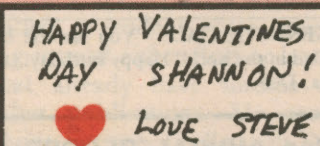 HAPPY VALENTINES
DAY SHANNON!
LOVE STEVE